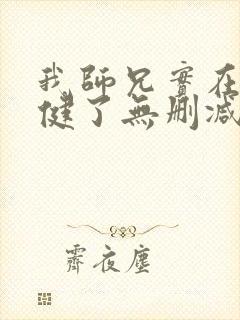 我師兄實在
健了無刪減
霽夜塵